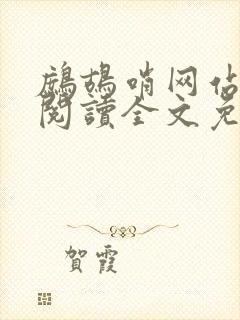 鷓鴣哨网
閱讀全文免
賀霞